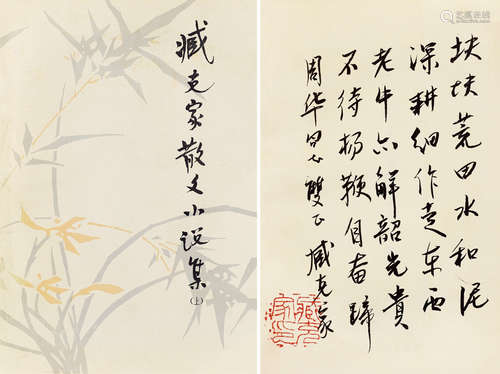 臧克家散文小说集
(上)
块块荒田水和泥
深耕细作走东西
老牛亦解韶光贵
不待扬鞭自奋蹄
周华同志双正 臧克家
臧克家印